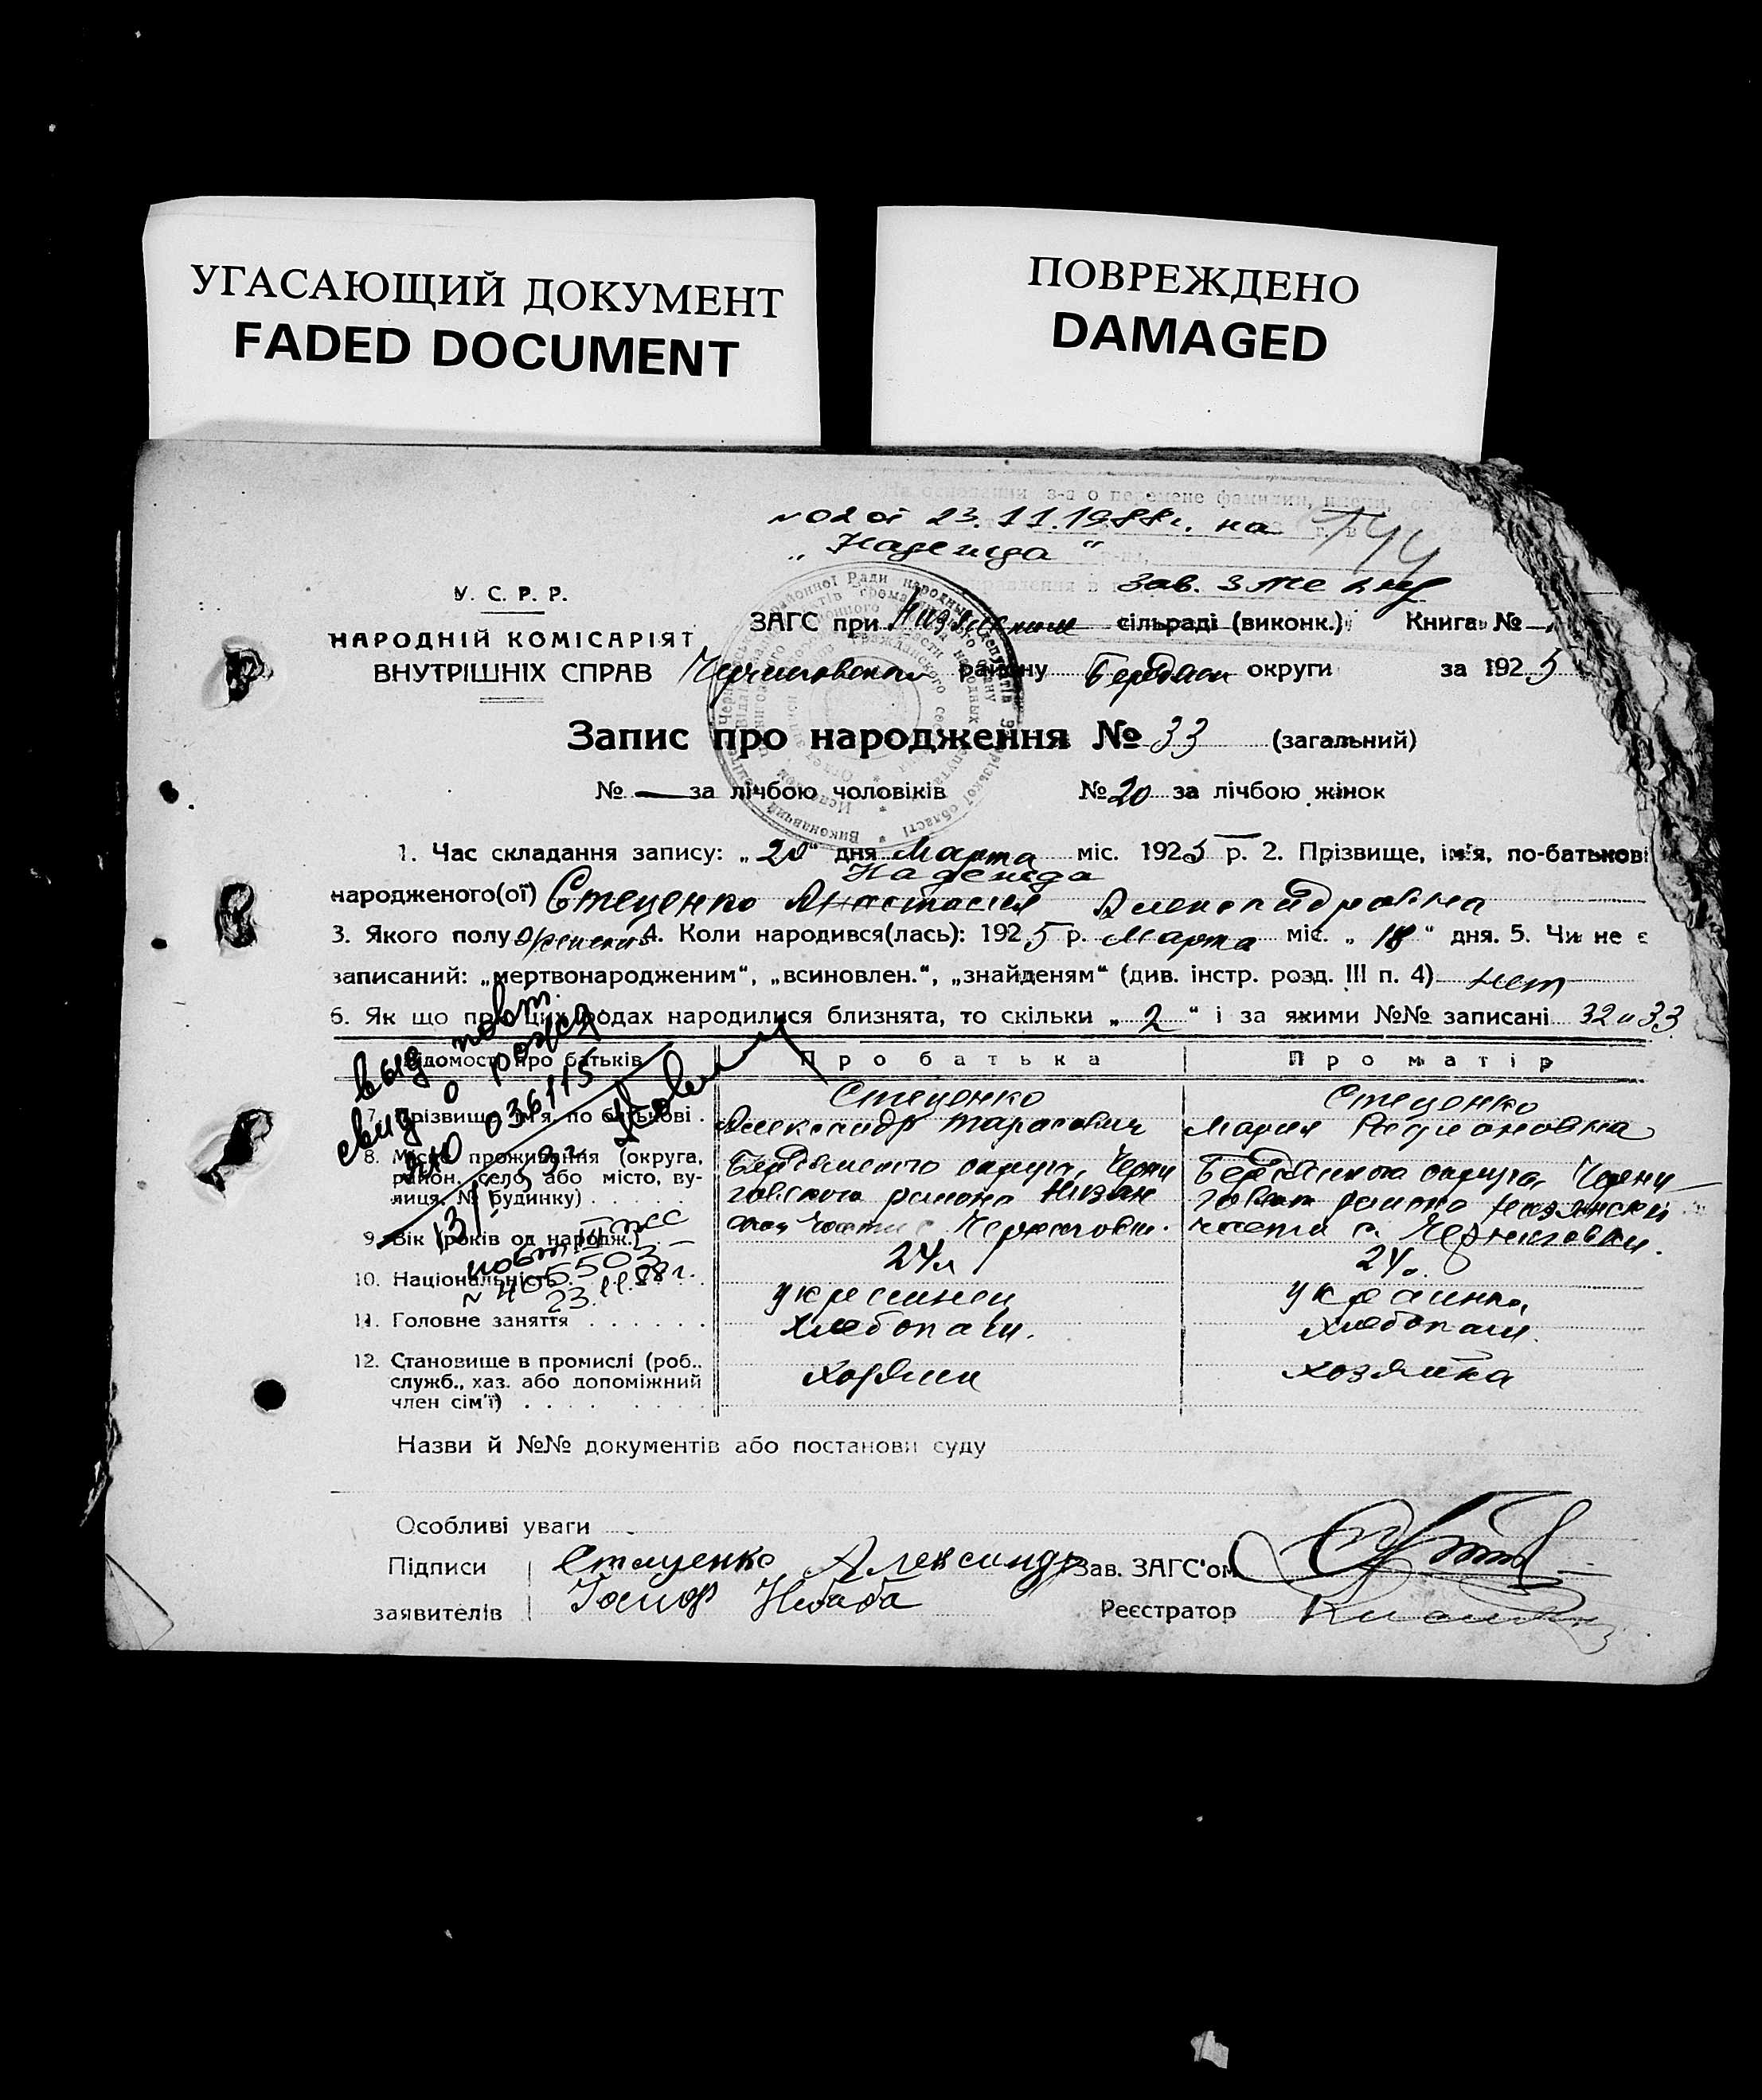 УГАСАЮЩИЙ ДОКУМЕНТ
FADED DOCUMENT
ПОВРЕЖДЕНО
DAMAGED
На основании з-а о перемене фамилии, имени,
№02 от 23.11.1988г. на
„Надежда“
Зав.
У. С. Р. Р.
НАРОДНІЙ КОМІСАРІЯТ
ВНУТРІШНІХ СПРАВ
ЗАГС при сільраді (виконк.) Книга №
району Бердян округи за 1925
Запис про народження № 33 (загальний)
№ — за лічбою чоловіків №20 за лічбою жінок
1. Час складання запису: „20“ дня Марта міс. 1925 р. 2. Прізвище, ім'я, по-батькові
Надежда
народженого(ої) Стеценко Анастасия Александровна
3. Якого полу женский 4. Коли народився(лась): 1925 р. Марта міс. „18“ дня. 5. Чи не є
записаний: „мертвонародженим“, „всиновлен.“, „знайденям“ (див. інстр. розд. III п. 4) нет
6. Як що при цих родах народилися близнята, то скільки „2“ і за якими №№ записані 32 и 33
Відомості про батьків
Про батька
Про матір
7. Прізвище, ім'я, по батькові
Стеценко
Александр Тарасович
Стеценко
Мария Родионовна
8. Місце проживання (округа,
район, село або місто, ву-
лиця, № будинку)
Бердянского округа, Черни
говского района Низян
ской части с Черниговки.
Бердянского округа, Черни
говского района Низянской
части с. Черниговки.
9. Вік (років од народж.)
24л
24л.
10. Національність
украинец
украинка
11. Головне заняття
хлебопаш.
хлебопаш.
12. Становище в промислі (роб.,
служб., хаз. або допоміжний
член сім'ї)
хозяин
хозяйка
выд повт.
свид о рожд
036115
повт
23.11.88г.
Назви й №№ документів або постанови суду
Особливі уваги
Підписи
заявителів
Стаценко Александр
Иосиф
Зав. ЗАГС'ом
Реєстратор